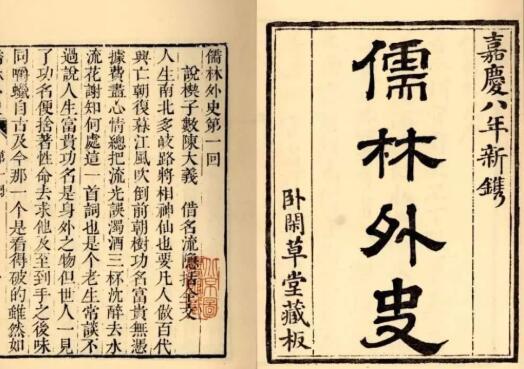 嘉慶八年新鐫
儒林外史
卧閑草堂藏板
儒林外史第一回
說楔子敷陳大義 借名流隱括全文
人生南北多岐路將相神仙也要凡人做百代
興亡朝復暮江風吹倒前朝樹功名富貴無憑
據費盡心情總把流光誤濁酒三杯沈醉去水
流花謝知何處這一首詞也是個老生常談不
過說人生富貴功名是身外之物但世人一見
了功名便捨著性命去求他及至到手之後味
同嚼蠟自古及今那一個是看得破的雖然如